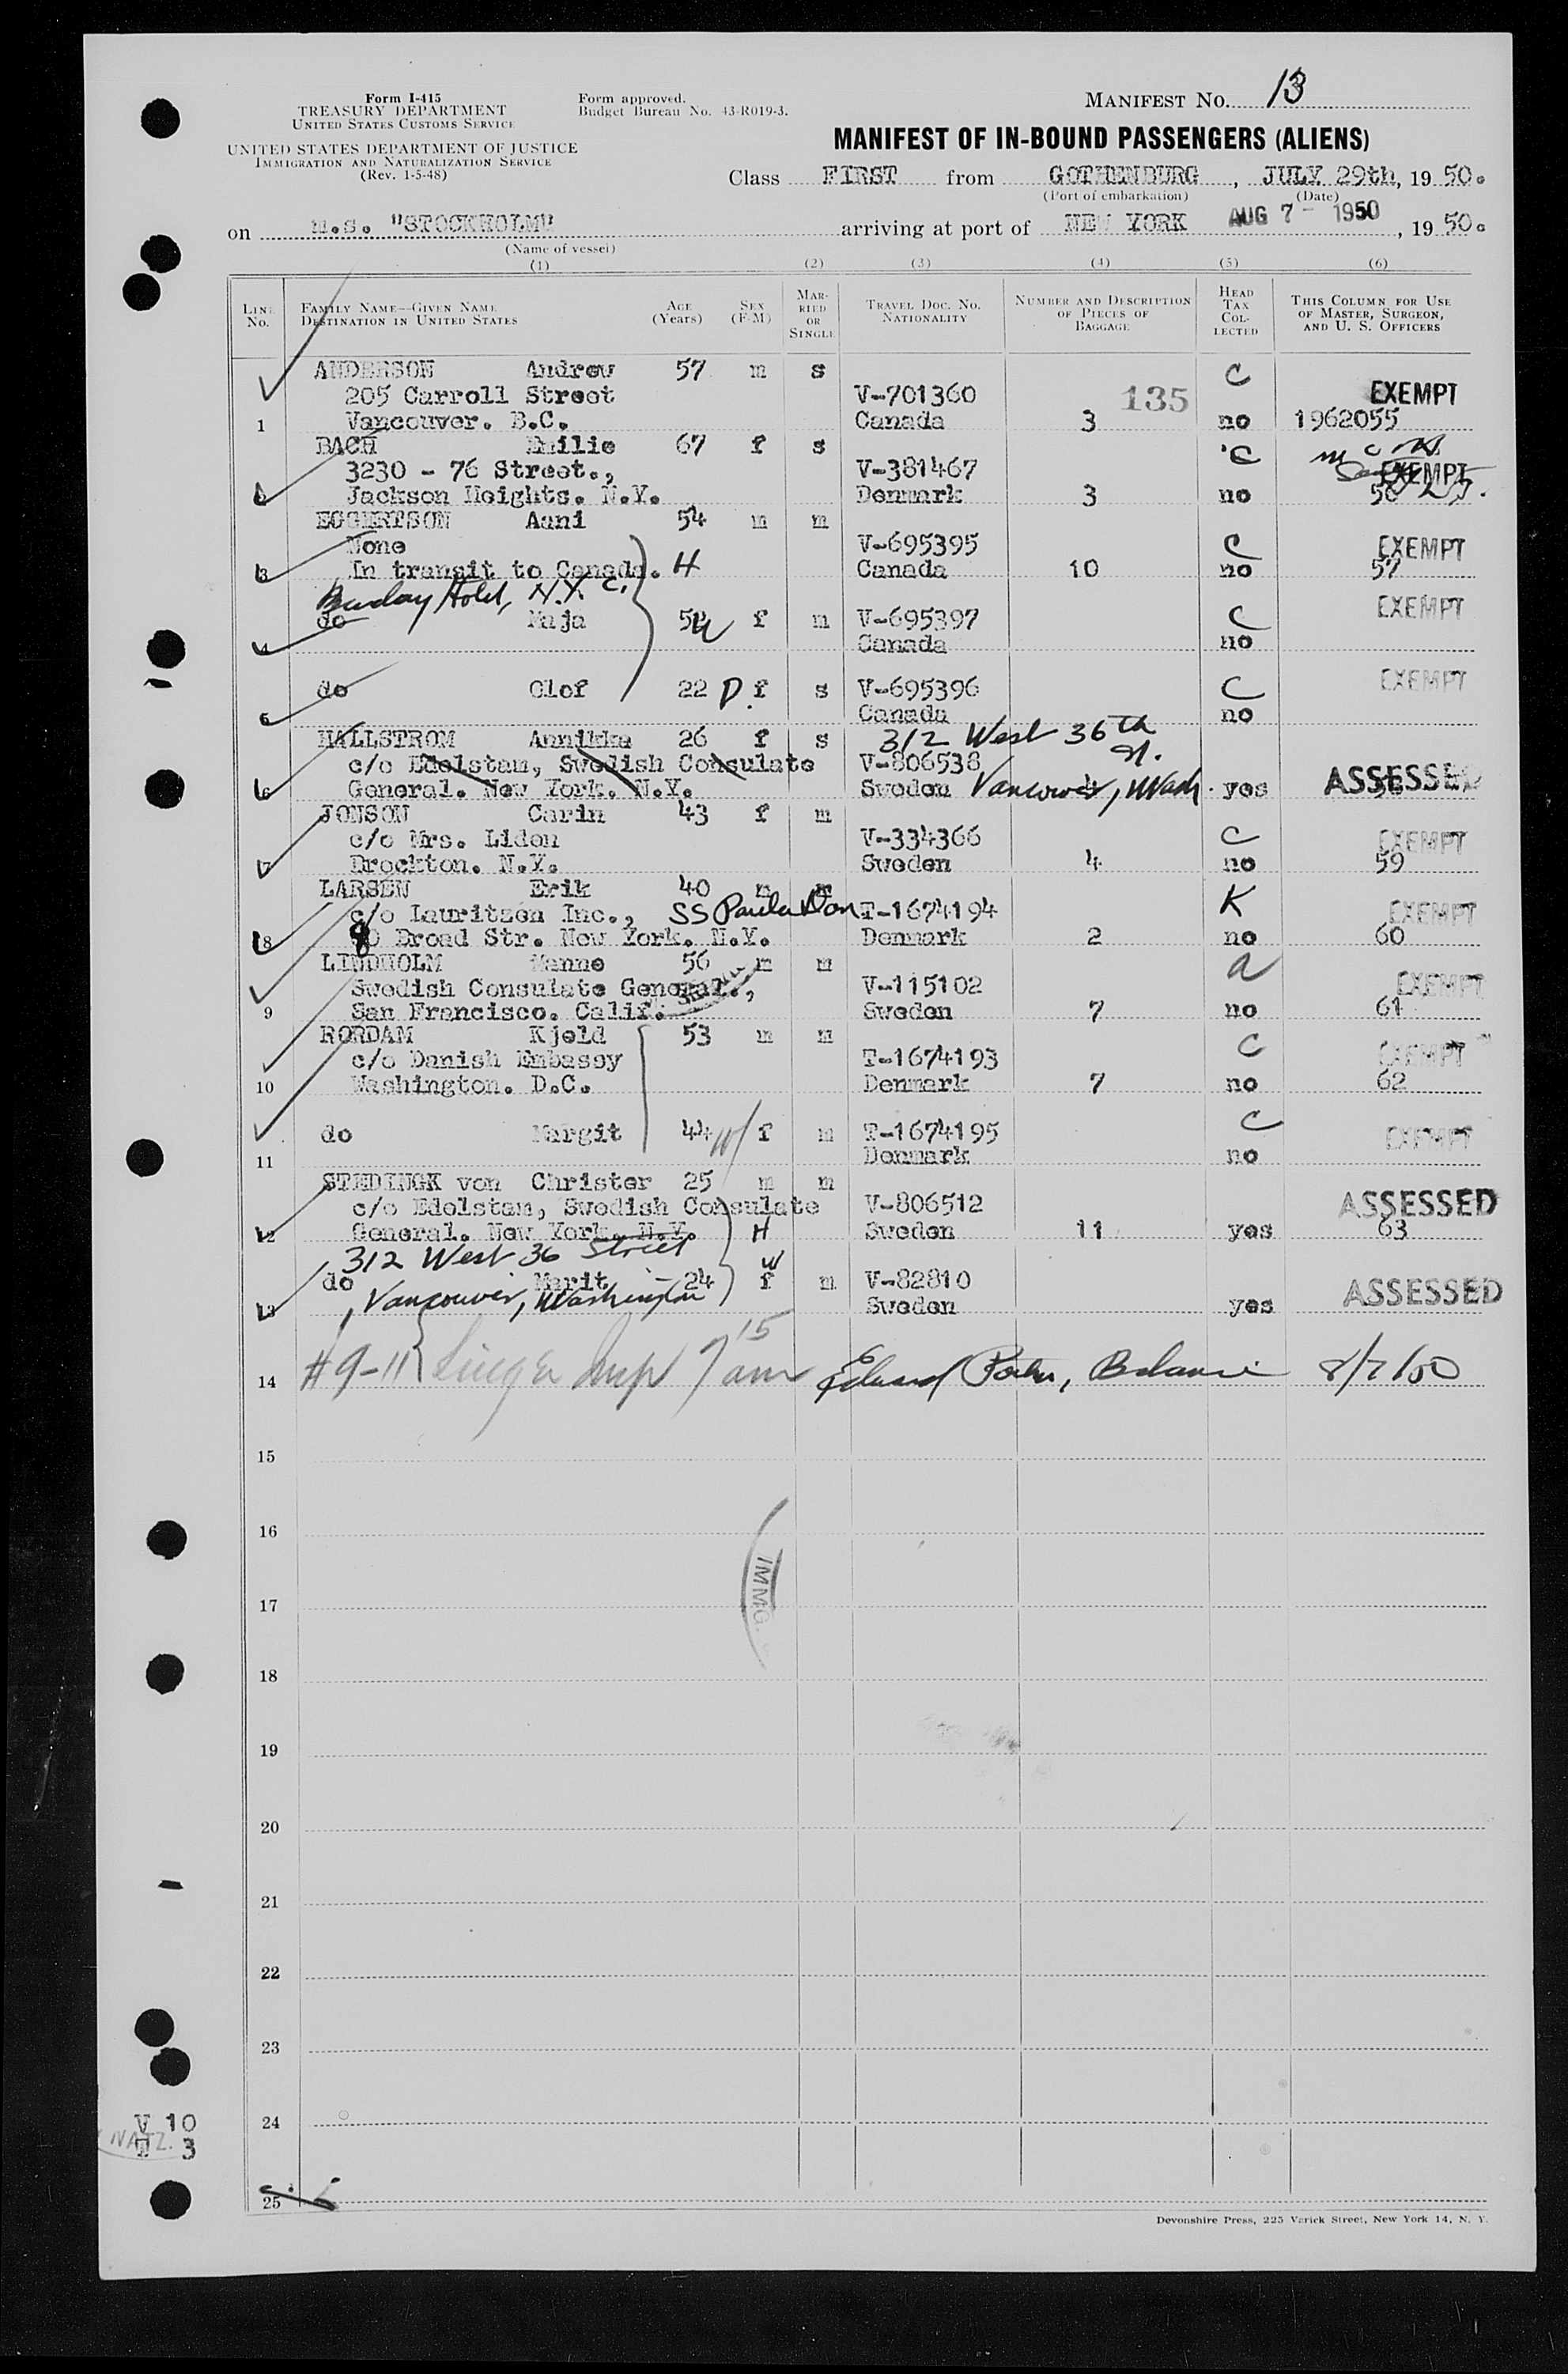 Form I-415
TREASURY DEPARTMENT
UNITED STATES CUSTOMS SERVICE
UNITED STATES DEPARTMENT OF JUSTICE
IMMIGRATION AND NATURALIZATION SERVICE
(Rev. 1-5-48)
Form approved.
Budget Bureau No. 43-R019-3.
MANIFEST NO. 13
MANIFEST OF IN-BOUND PASSENGERS (ALIENS)
Class FIRST from GOTHENBURG, JULY 29th, 19 50.
(Port of embarkation) (Date)
on m.s. "STOCKHOLM" arriving at port of NEW YORK AUG 7 - 1950, 19 50.
(Name of vessel)
(1) (2) (3) (4) (5) (6)
LINE No. FAMILY NAME—GIVEN NAME DESTINATION IN UNITED STATES AGE (Years) SEX (F-M) MARRIED OR SINGLE TRAVEL DOC. NO. NATIONALITY NUMBER AND DESCRIPTION OF PIECES OF BAGGAGE HEAD TAX COLLECTED THIS COLUMN FOR USE OF MASTER, SURGEON, AND U. S. OFFICERS
ANDERSON Andrew 57 m s C
205 Carroll Street V-701360 135 EXEMPT
1 Vancouver. B.C. Canada 3 no 1962055
BACH Emilie 67 f s C
3230 - 76 Street., V-381467 EXEMPT
2 Jackson Heights. N.Y. Denmark 3 no 56
EGGERTSON Aani 54 m m
None V-695395 C EXEMPT
3 In transit to Canada. H Canada 10 no 57
Hotel, N.Y.C.
do Maja 52 W f m V-695397 C EXEMPT
4 Canada no
do Olof 22 D. f s V-695396 C EXEMPT
5 Canada no
HALLSTROM Annikka 26 f s 312 West 36th St.
c/o Edelstam, Swedish Consulate V-806538
6 General. New York. N.Y. Sweden Vancouver, Wash. yes ASSESSED
JONSON Carin 43 f m C
c/o Mrs. Liden V-334366 EXEMPT
7 Brockton. N.Y. Sweden 4 no 59
LARSEN Erik 40 m m K
c/o Lauritzen Inc., SS Paula Dan T-1674194 EXEMPT
8 Broad Str. New York. N.Y. Denmark 2 no 60
LINDHOLM Manne 56 m m a
Swedish Consulate General., V-115102 EXEMPT
9 San Francisco. Calif. Sweden 7 no 61
RORDAM Kjeld 53 m m C
c/o Danish Embassy T-1674193 EXEMPT
10 Washington. D.C. Denmark 7 no 62
do Margit 44 W f m T-1674195 C EXEMPT
11 Denmark no
STEDINGK von Christer 25 m m
c/o Edelstam, Swedish Consulate V-806512 ASSESSED
12 General. New York. N.Y. H Sweden 11 yes 63
312 West 36 Street
do Marit - 24 W f m V-82810 ASSESSED
13 Vancouver, Washington Sweden yes
14 #9-11 7 15 am Edward 8/7/50
15
16
IMMG.
17
18
19
20
21
22
23
24
V 10
NATZ.
T 3
25
Devonshire Press, 225 Varick Street, New York 14, N. Y.